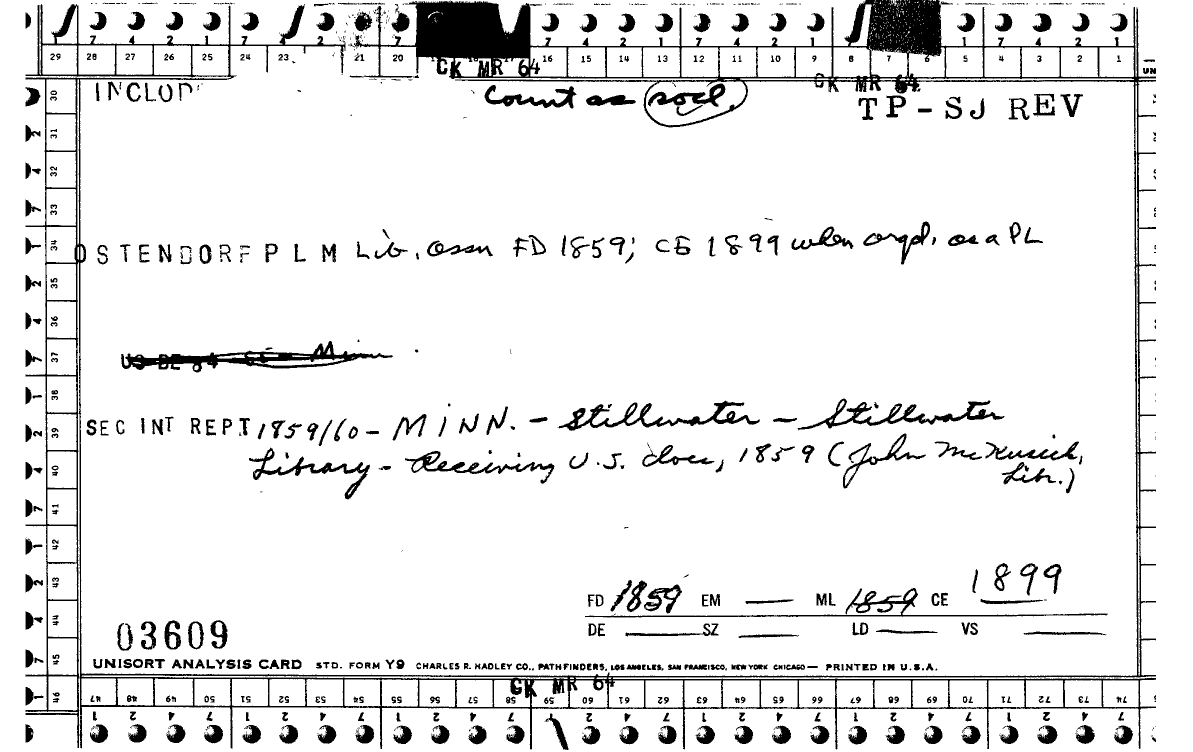 7 4 2 1 7 4 2 7 7 4 2 1 7 4 2 1 7 1 7 4 2 1
29 28 27 26 25 24 23 21 20 16 15 14 13 12 11 10 9 8 7 6 5 4 3 2 1
CK MR 64 CK MR 64
INCLOP
Count as socl.
TP-SJ REV
OSTENDORF P L M Lib. assn FD 1859; CE 1899 when orgd. as a PL
US BE 84 Minn
SEC INT REPT 1859/60 - MINN. - Stillwater - Stillwater
Library - Receiving U.S. docs, 1859 (John McKusick,
Libr.)
FD 1859 EM ML 1859 CE 1899
DE SZ LD VS
03609
UNISORT ANALYSIS CARD STD. FORM Y9 CHARLES R. HADLEY CO., PATHFINDERS, LOS ANGELES, SAN FRANCISCO, NEW YORK CHICAGO — PRINTED IN U.S.A.
CK MR 64
30
2 31
4 32
7 33
1 34
2 35
4 36
7 37
1 38
2 39
4 40
7 41
1 42
2 43
4 44
7 45
1 46
47 48 49 50 51 52 53 54 55 56 57 58 59 60 61 62 63 64 65 66 67 68 69 70 71 72 73 74
1 2 4 7 1 2 4 7 1 2 4 7 1 2 4 7 1 2 4 7 1 2 4 7 1 2 4 7